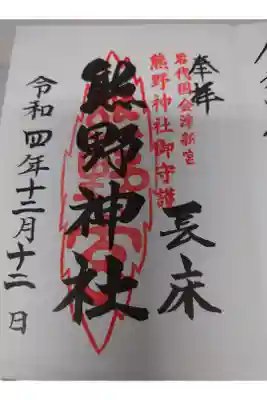 奉拝
長床
岩代国会津新宮
熊野神社御守護
熊野神社
令和四年十二月十二日